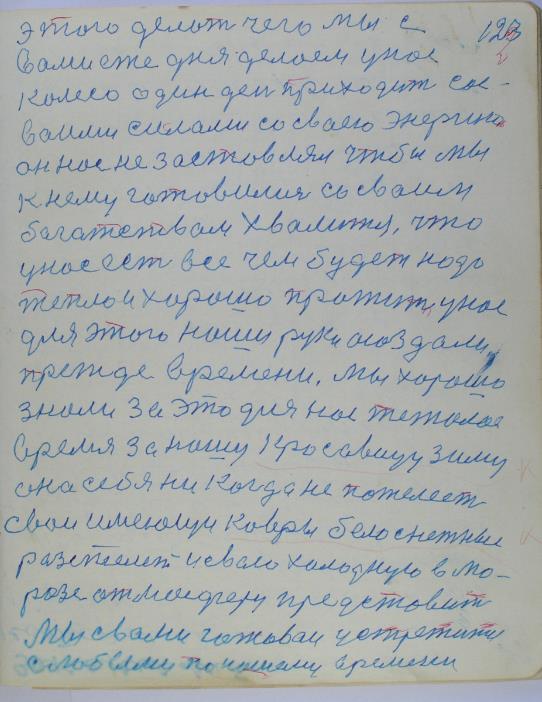 этого делат чего мы с 123
вами еже дня делаем унас
колесо один ден приходит сос-
воими силами со сваею энергию
он нас не заставлял чтобы мы
к нему готовилися со своим
багатством хвалится, что
унас ест все чем будет надо
тепло и хорошо прожит, унас
для этого наши руки создали,
прежде времени. Мы хорошо
знали за это для нас тежолое
время за нашу красавицу зиму
она себя ни когда не пожелеет
свои имеющи ковры белоснежные
разстелит и сваю холодную в мо-
розе атмосферу представит
Мы с вами готоваи устретити
с любвями по нашему времени